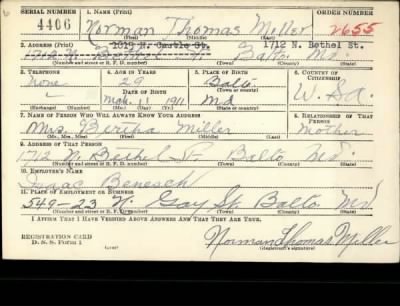 SERIAL NUMBER 1. NAME (Print) ORDER NUMBER
4406 Norman Thomas Miller 2655
(First) (Middle) (Last)
2. ADDRESS (Print) 1819 N. Castle St. 1712 N. Bethel St.
1712 N. Bethel St. Balto. Md.
(Number and street or R. F. D. number) (Town) (County) (State)
3. TELEPHONE 4. AGE IN YEARS 5. PLACE OF BIRTH 6. COUNTRY OF CITIZENSHIP
none 29 Balto.
DATE OF BIRTH (Town or county)
Mar. 11 1911 Md U.S.A.
(Exchange) (Number) (Mo.) (Day) (Yr.) (State or country)
7. NAME OF PERSON WHO WILL ALWAYS KNOW YOUR ADDRESS 8. RELATIONSHIP OF THAT PERSON
Mrs. Bertha Miller Mother
(Mr., Mrs., Miss) (First) (Middle) (Last)
9. ADDRESS OF THAT PERSON
1712 N Bethel St Balto Md.
(Number and street or R. F. D. number) (Town) (County) (State)
10. EMPLOYER'S NAME
Isaac Benesch
11. PLACE OF EMPLOYMENT OR BUSINESS
549-23 N. Gay St. Balto Md.
(Number and street or R. F. D. number) (Town) (County) (State)
I AFFIRM THAT I HAVE VERIFIED ABOVE ANSWERS AND THAT THEY ARE TRUE.
REGISTRATION CARD
D. S. S. Form 1 Norman Thomas Miller
(over) (Registrant's signature)